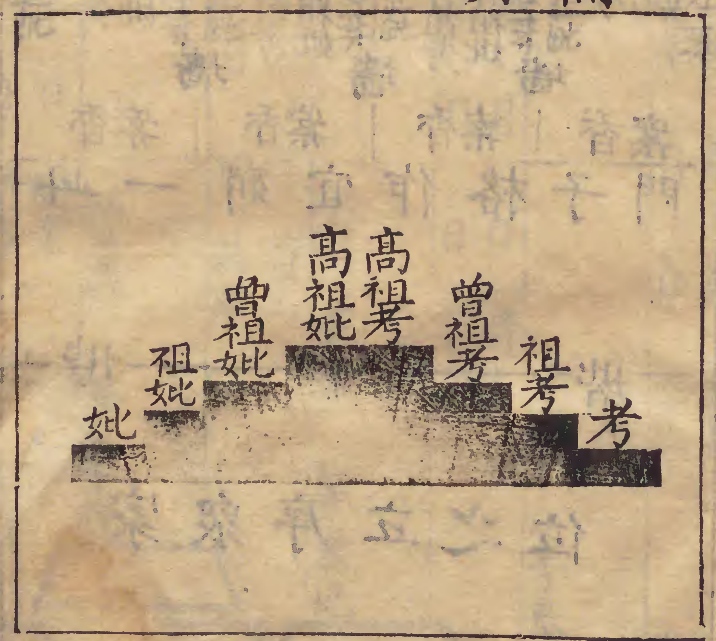 考
祖考
曾祖考
高祖考
高祖妣
曾祖妣
祖妣
妣